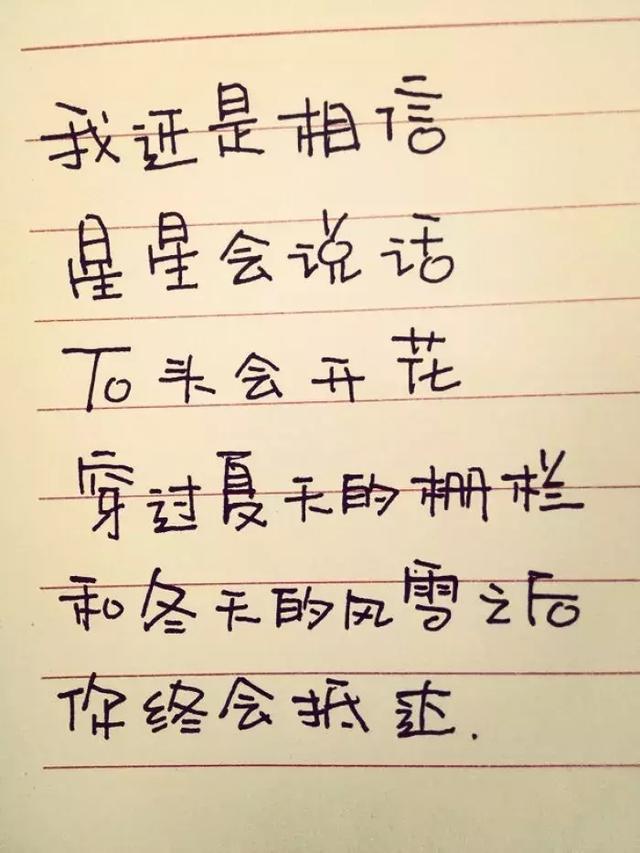 我还是相信
星星会说话
石头会开花
穿过夏天的栅栏
和冬天的风雪之后
你终会抵达.